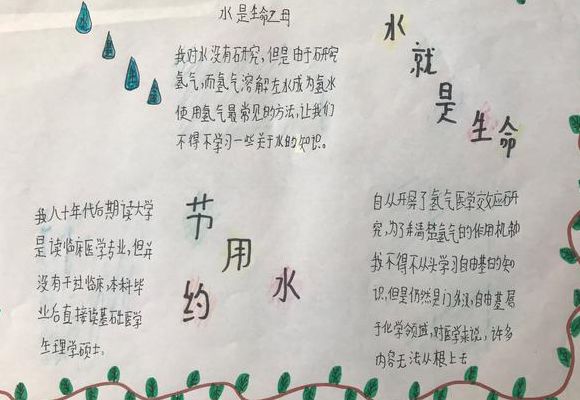 水是生命之母
我对水没有研究，但是由于研究
氢气，而氢气溶解在水成为氢水
使用氢气最常见的方法，让我们
不得不学习一些关于水的知识。
水就是生命
我八十年代后期读大学
是读临床医学专业，但并
没有干过临床，本科毕
业后直接读基础医学
生理学硕士。
节约用水
自从开展了氢气医学效应研
究，为了弄清楚氢气的作用机制
我不得不从头学习自由基的知
识，但是仍然是门外汉，自由基属
于化学领域，对医学来说，许多
内容无法从根上去